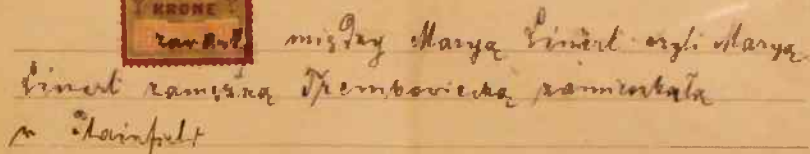 KRONE
zawarty między Maryą Linert czyli Maryą
Linert zamężną Trembowiecką zamieszkałą
w Stainfels